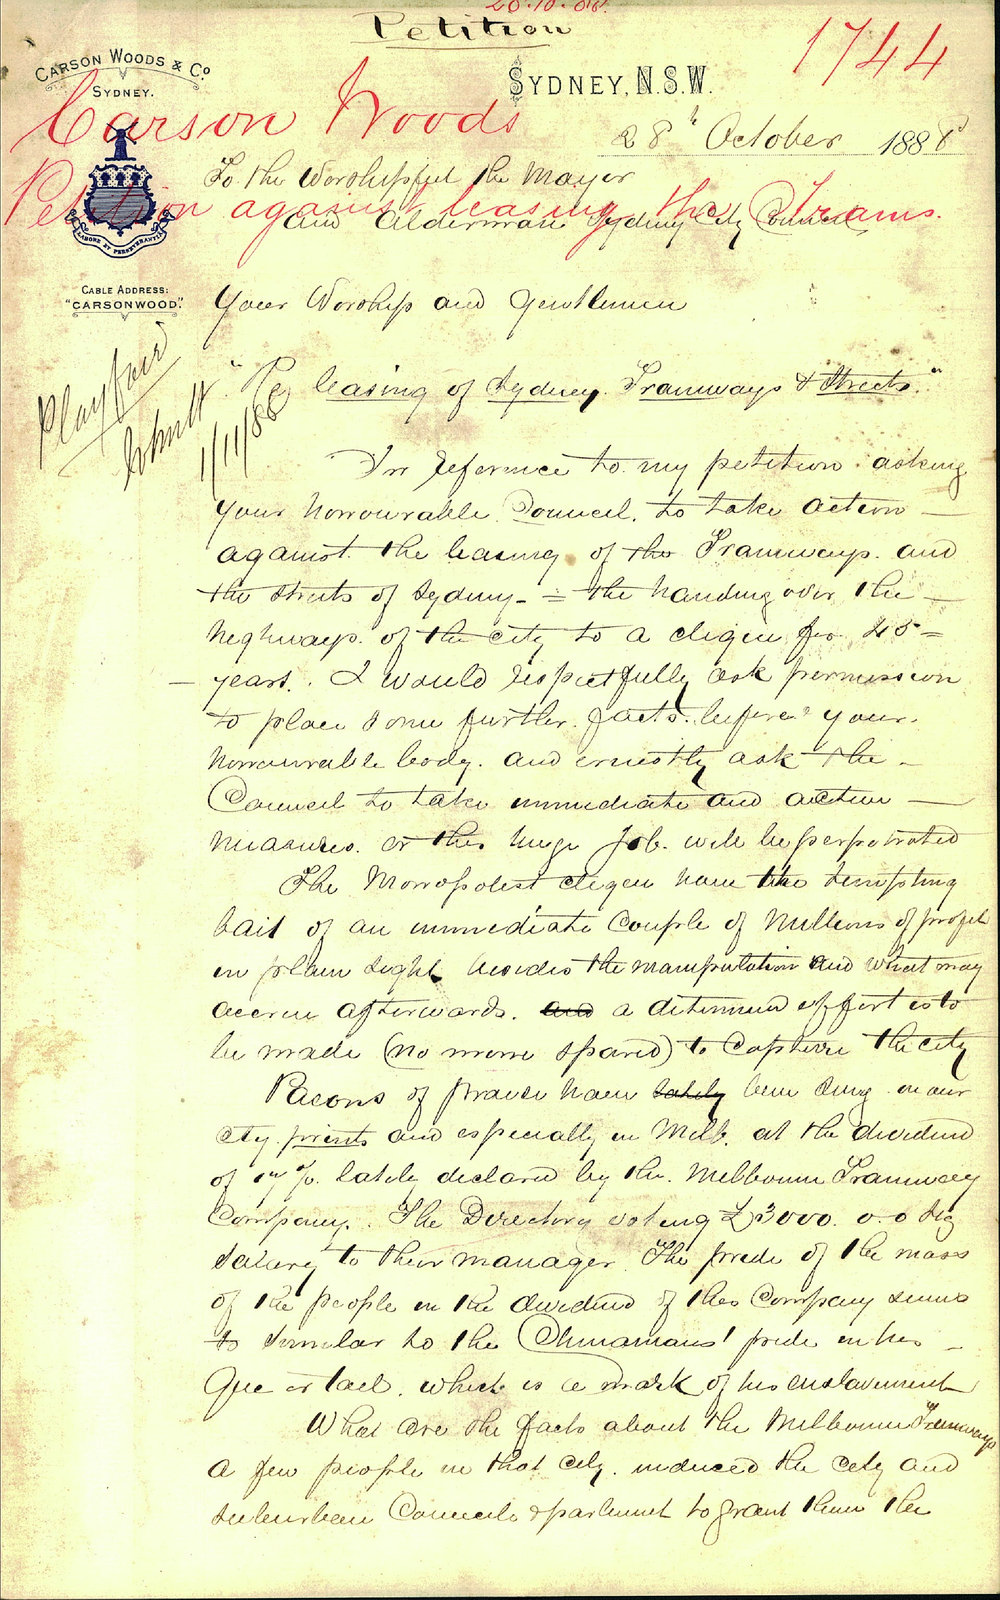 20.10.88.
Petition
1744
CARSON WOODS & Co
SYDNEY.
SYDNEY, N.S.W.
Carson Woods
28th October 1888
To the Worshipful the Mayor
Petition against leasing the Trams.
and Alderman Sydney City Council
LABORE ET PERSEVERANTIA
CABLE ADDRESS:
"CARSONWOOD."
Your Worship and Gentlemen
Playfair
1/11/88
"Re leasing of Sydney Tramways & Streets."
In reference to my petition asking
your honourable Council, to take action —
against the leasing of the Tramways and
the streets of Sydney - = the handing over the —
highways of the city to a clique for 45 —
— years. I would respectfully ask permission
to place some further facts before your
honourable body. and ernestly ask the —
Council to take immediate and action —
measures. or this huge Job. will be perpetrated
The Monopolist cliquer have the tempting
bait of an immediate Couple of Millions of profit
in plain sight besides the manipulation and what may
accrue afterwards. and a determined effort is to
be made (no money spared) to Capture the city
Pæons of praise have lately been sung in our
city prints and especially in Melb. at the dividend
of % lately declared by the Melbourne Tramway
Company. The Directory voting £3000. 0. 0
salary to their manager. The pride of the mass
of the people in the dividend of this Company seems
to similar to the Chinamans' pride in his —
Que or tael. which is a mark of his enslavement
What are the facts about the Melbourne Tramways
a few people in that city. induced the city and
suburban Councils & parliament to grant them the